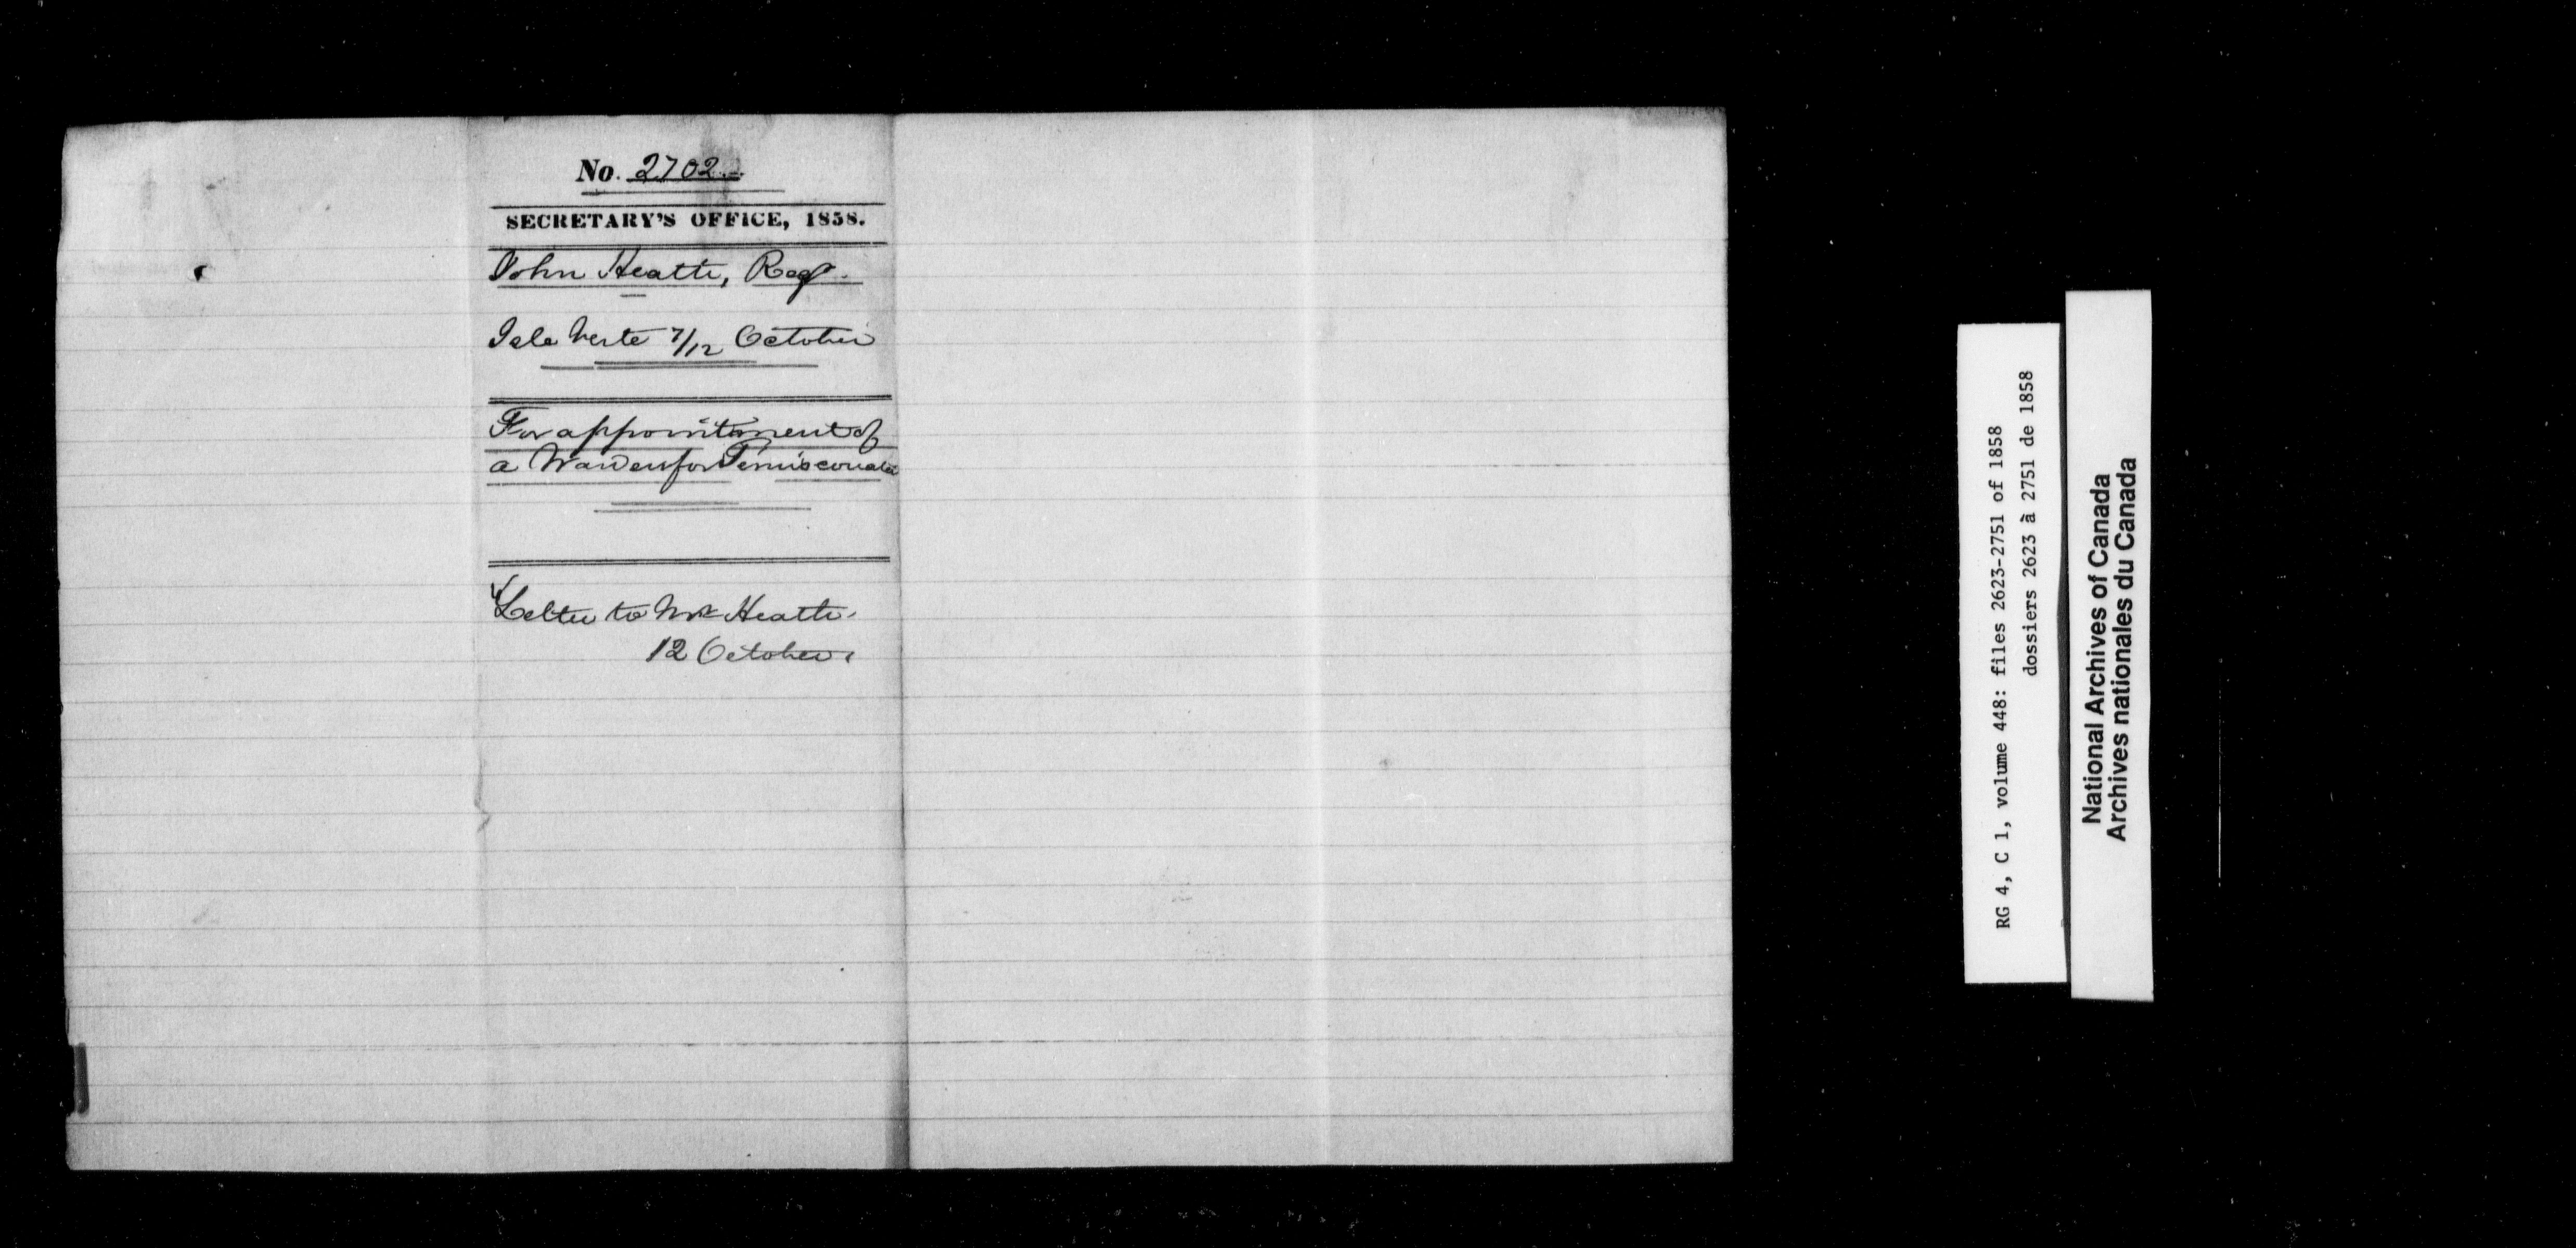 No. 2702
SECRETARY'S OFFICE, 1858.
John Heath, Regr.
Isle Verte 7/12 October
For appointment of
a Warden for Temiscouata
Letter to Mr Heath.
12 October.
RG 4, C 1, volume 448: files 2623-2751 of 1858
dossiers 2623 à 2751 de 1858
National Archives of Canada
Archives nationales du Canada